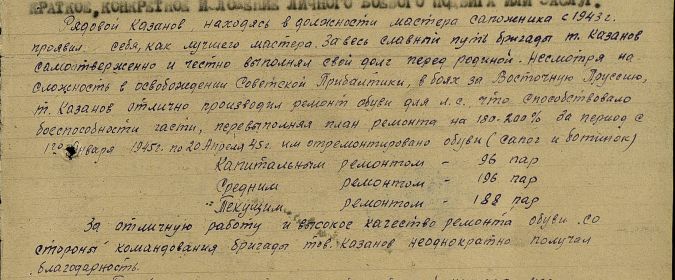 КРАТКОЕ, КОНКРЕТНОЕ ИЗЛОЖЕНИЕ ЛИЧНОГО БОЕВОГО ПОДВИГА ИЛИ ЗАСЛУГ.
Рядовой Казанов, находясь в должности мастера сапожника с 1943г.
проявил себя, как лучшего мастера. За весь славный путь бригады т. Казанов
самотверженно и честно выполнял свой долг перед родиной. Несмотря на
сложность в освобождении Советской Прибалтики, в боях за Восточную Пруссию,
т. Казанов отлично производил ремонт обуви для л.с., что способствовало
боеспособности части, перевыполняя план ремонта на 180-200% за период с
1го Января 1945г. по 20 Апреля 45г им отремонтировано обуви (сапог и ботинок)
Капитальным ремонтом - 96 пар
Средним ремонтом - 196 пар
Текущим ремонтом - 188 пар
За отличную работу и высокое качество ремонта обуви со
стороны командования бригады тов. Казанов неоднократно получал
благодарность.